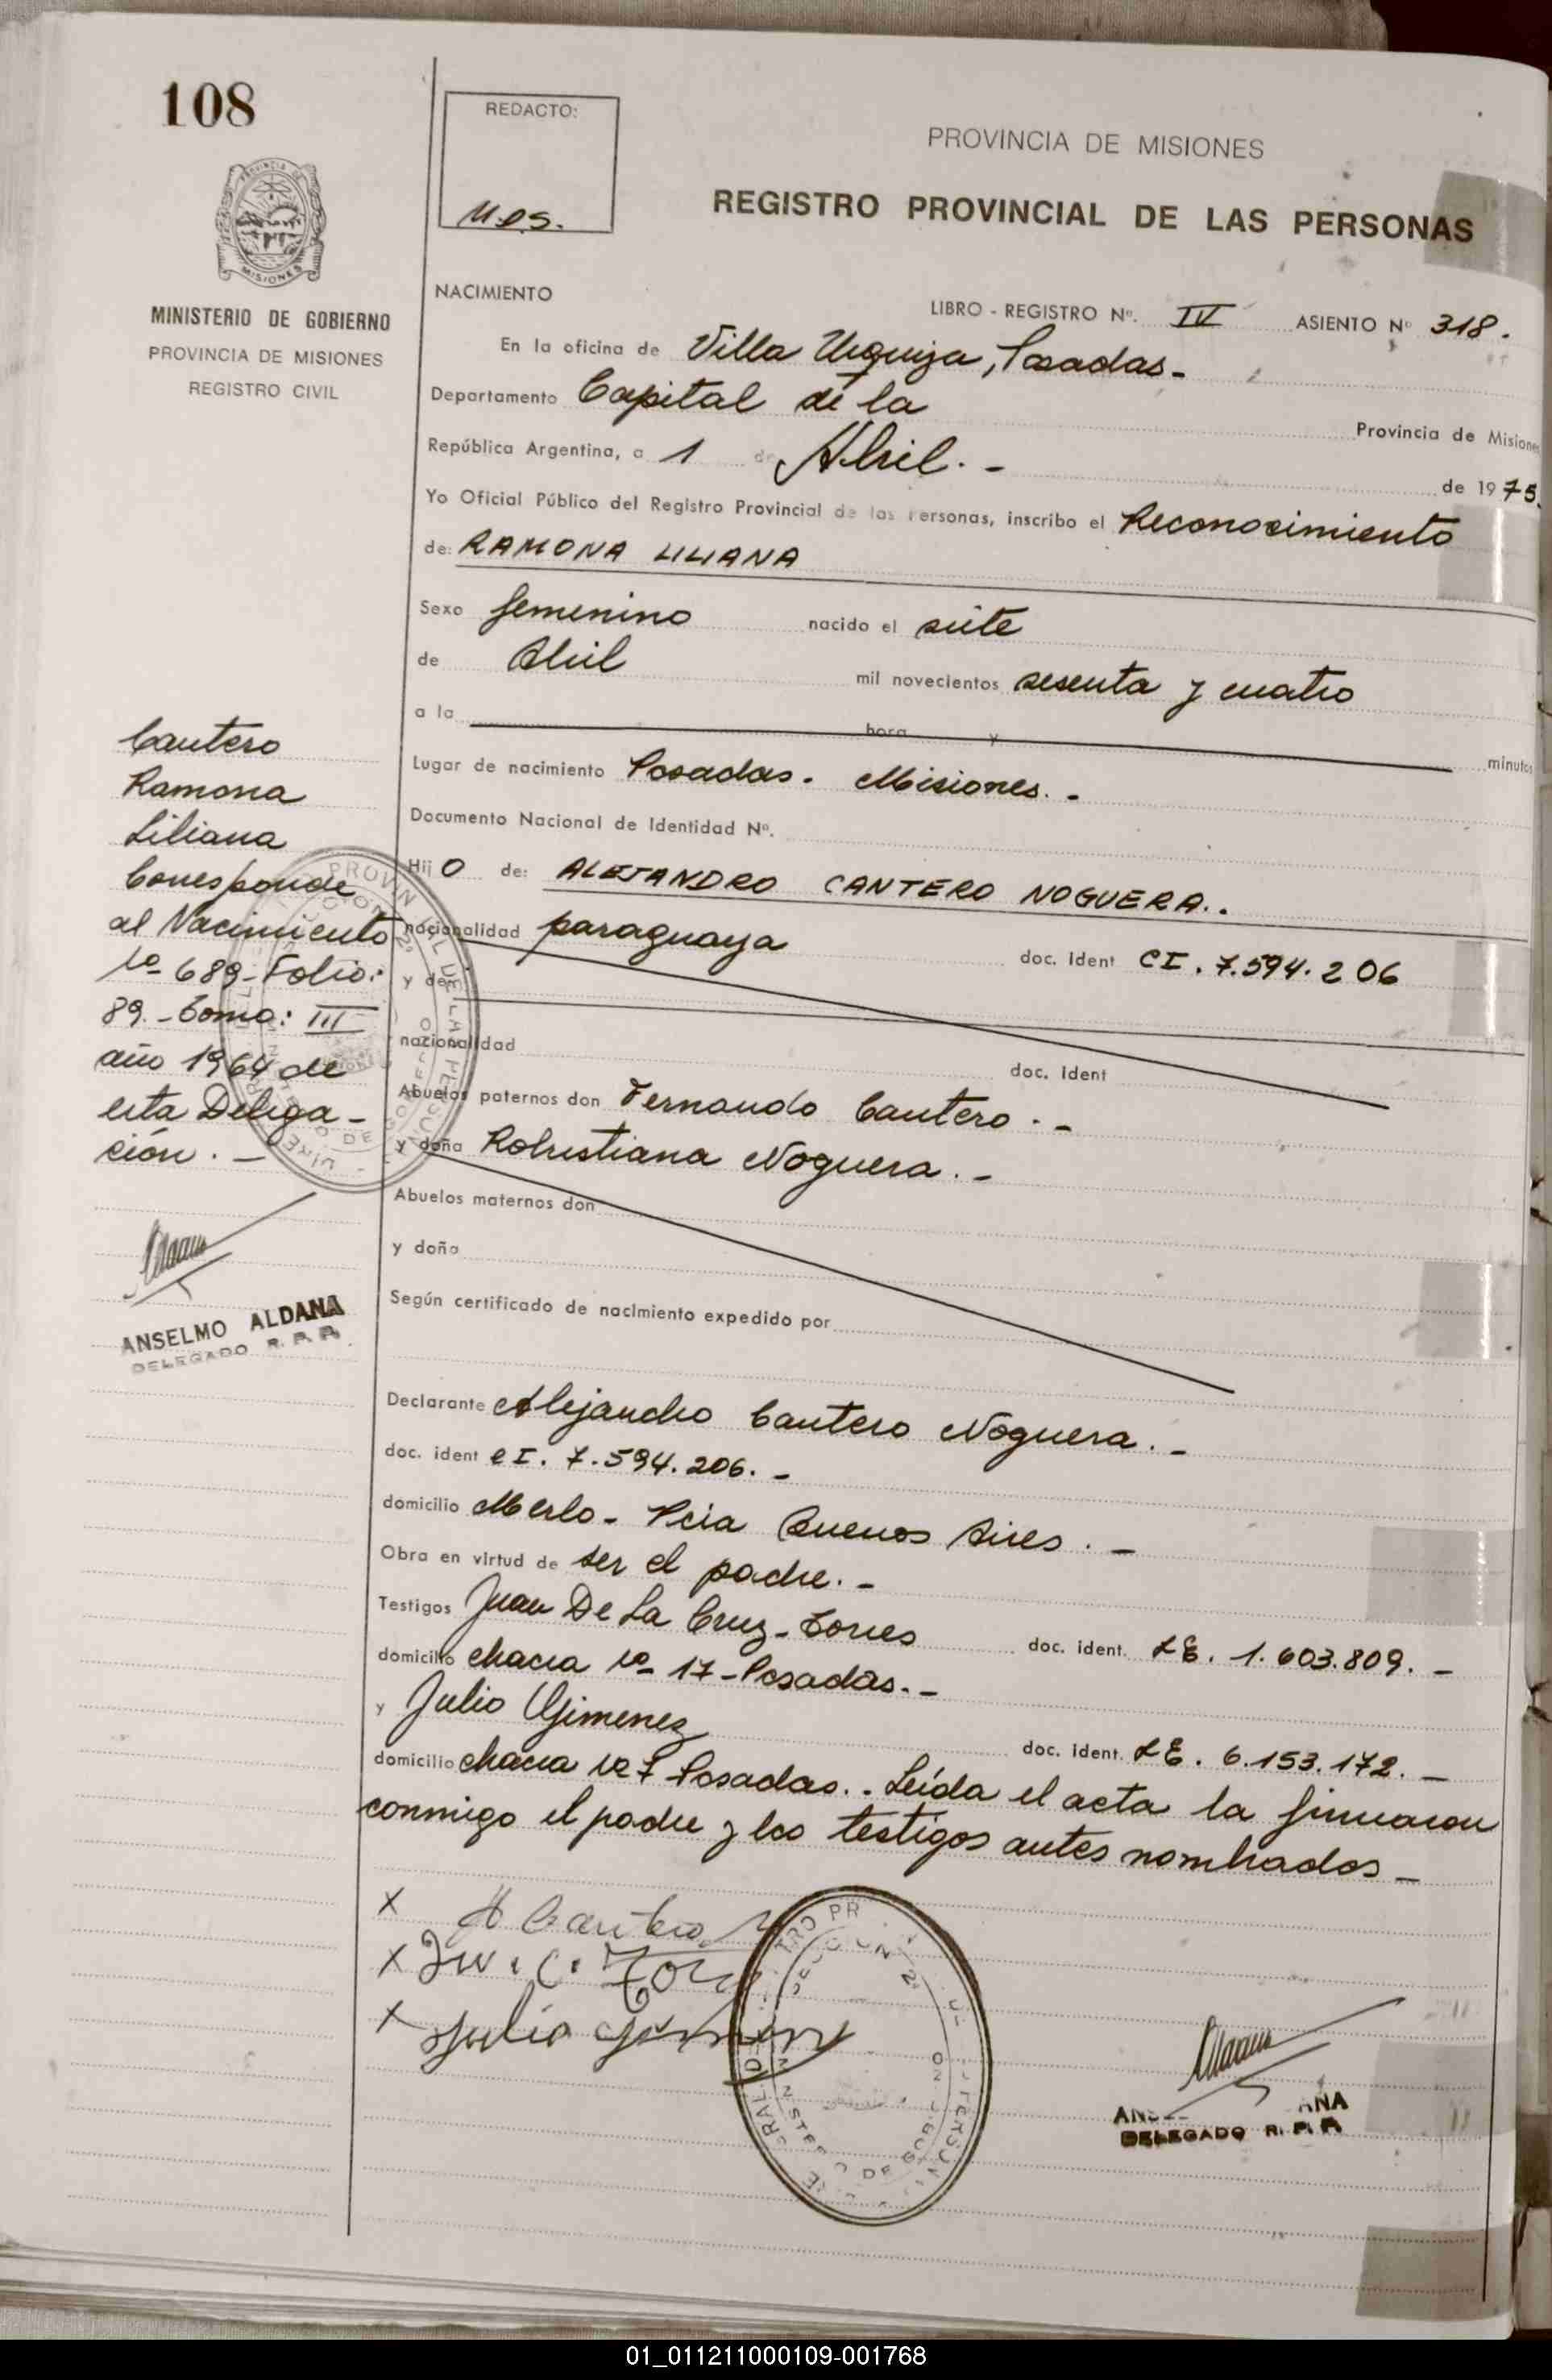 108
REDACTO:
PROVINCIA DE MISIONES
REGISTRO PROVINCIAL DE LAS PERSONAS
MISIONES
MINISTERIO DE GOBIERNO
PROVINCIA DE MISIONES
REGISTRO CIVIL
NACIMIENTO
LIBRO - REGISTRO Nº. IV ASIENTO Nº 318.
En la oficina de Villa Urquiza, Posadas-
Departamento Capital de la Provincia de Misiones
República Argentina, a 1 de Abril. - de 1975.
Yo Oficial Público del Registro Provincial de las Personas, inscribo el Reconocimiento
de: RAMONA LILIANA
Sexo femenino nacido el siete
de Abril mil novecientos sesenta y cuatro
a la hora y minutos
Lugar de nacimiento Posadas. Misiones. -
Documento Nacional de Identidad Nº.
Hij O de: ALEJANDRO CANTERO NOGUERA..
nacionalidad paraguaya doc. Ident CI. 7.594.206
y de:
nacionalidad doc. Ident
Abuelos paternos don Fernando Cantero. -
y doña Robustiana Noguera. -
Abuelos maternos don
y doña
Según certificado de nacimiento expedido por
Cantero
Ramona
Liliana
Corresponde
al Nacimiento
Nº 689-Folio:
89.-Tomo: III
año 1964 de
esta Delega-
ción. -
ANSELMO ALDANA
DELEGADO R. P. P.
Declarante Alejandro Cantero Noguera. -
doc. ident CI. 7.594.206. -
domicilio Merlo- Pcia Buenos Aires. -
Obra en virtud de ser el padre. -
Testigos Juan De La Cruz-Torres doc. ident. LE. 1.603.809. -
domicilio chacra Nº 17-Posadas. -
y Julio Gimenez doc. ident. LE. 6.153.172. -
domicilio chacra Nº 7 Posadas.. Leída el acta la firmaron
conmigo el padre y los testigos antes nombrados -
X A Cantero N
X Ju. C. Torres
X Julio Gimenez
DELEGADO R. P. P.
01_011211000109-001768